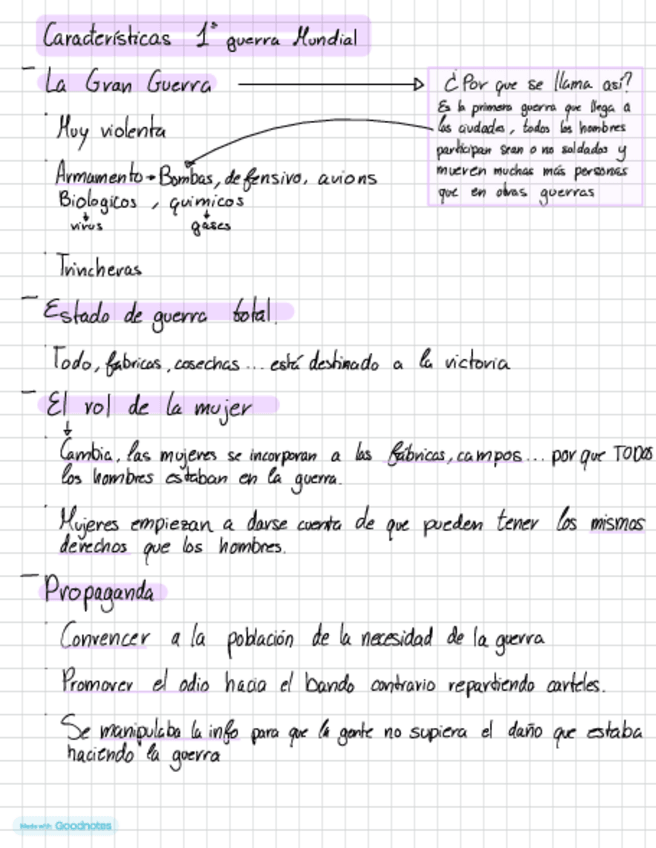 Características 1ª guerra Mundial
La Gran Guerra
¿Por que se llama así?
Es la primera guerra que llega a
las ciudades, todos los hombres
participan sean o no soldados y
mueren muchas más personas
que en otras guerras
Muy violenta
Armamento → Bombas, defensivo, avions
Biologicos, químicos
virus gases
Trincheras
Estado de guerra total.
Todo, fabricas, cosechas... está destinado a la victoria
El rol de la mujer
Cambia, las mujeres se incorporan a las fábricas, campos... por que TODOS
los hombres estaban en la guerra.
Mujeres empiezan a darse cuenta de que pueden tener los mismos
derechos que los hombres.
Propaganda
Convencer a la población de la necesidad de la guerra
Promover el odio hacia el bando contrario repartiendo carteles.
Se manipulaba la info para que la gente no supiera el daño que estaba
haciendo la guerra
Made with Goodnotes